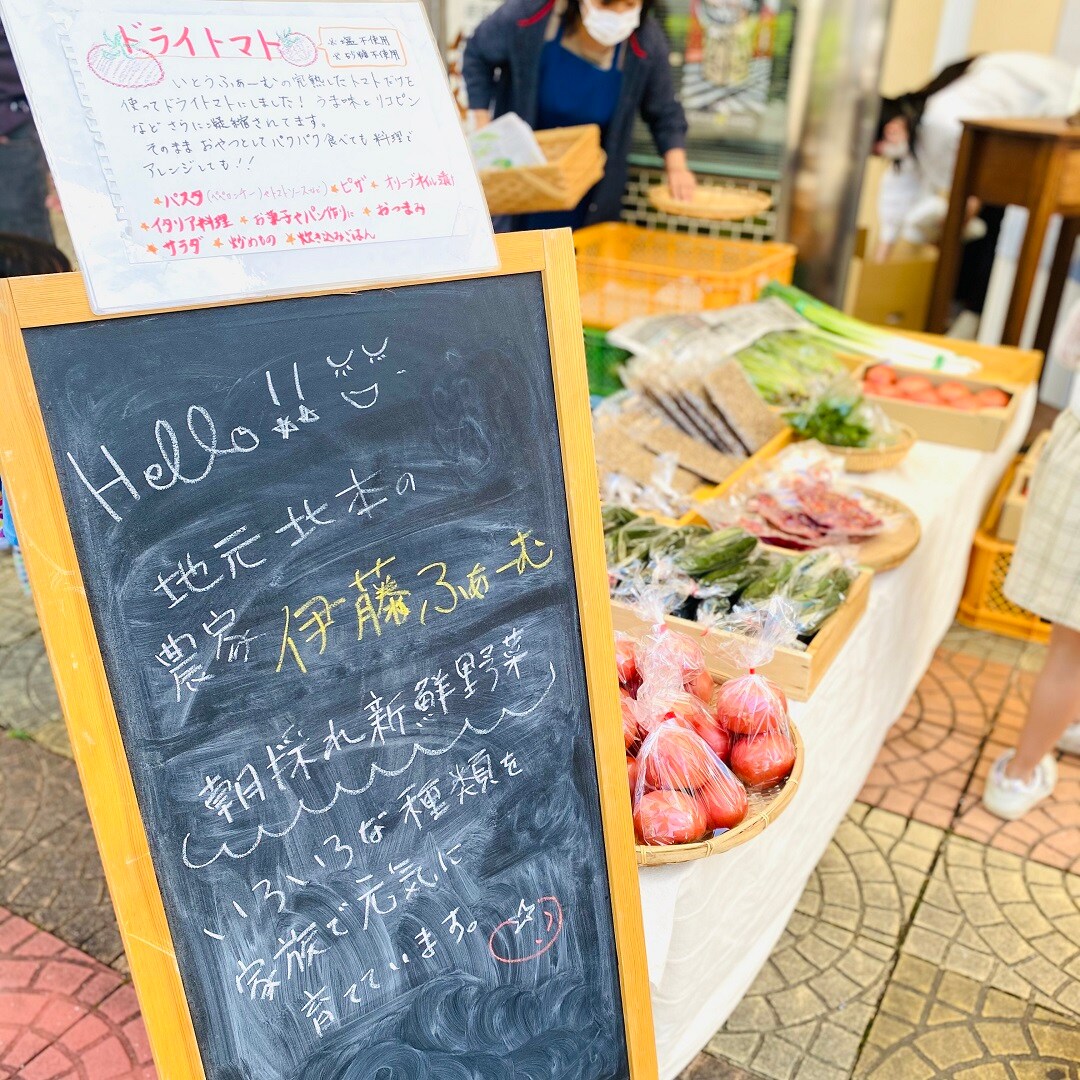 ドライトマト
※塩不使用
※砂糖不使用
いとうふぁーむの完熟したトマトだけを
使ってドライトマトにしました!うま味とリコピン
などさらに凝縮されてます。
そのままおやつとしてパクパク食べても料理で
アレンジしても!!
★パスタ(ペペロンチーノやトマトソースなど)★ピザ★オリーブオイル漬け
★イタリア料理★お菓子やパン作りに★おつまみ
★サラダ★炒めもの★炊き込みごはん
Hello!!
地元北本の
農家 伊藤ふぁーむ
朝採れ新鮮野菜
いろいろな種類を
家族で元気に
育てています。